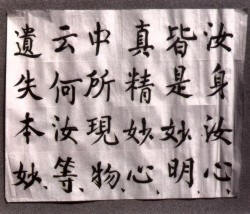 汝身汝心
皆是妙明
真精妙心
中所現物
云何汝等
遺失本妙